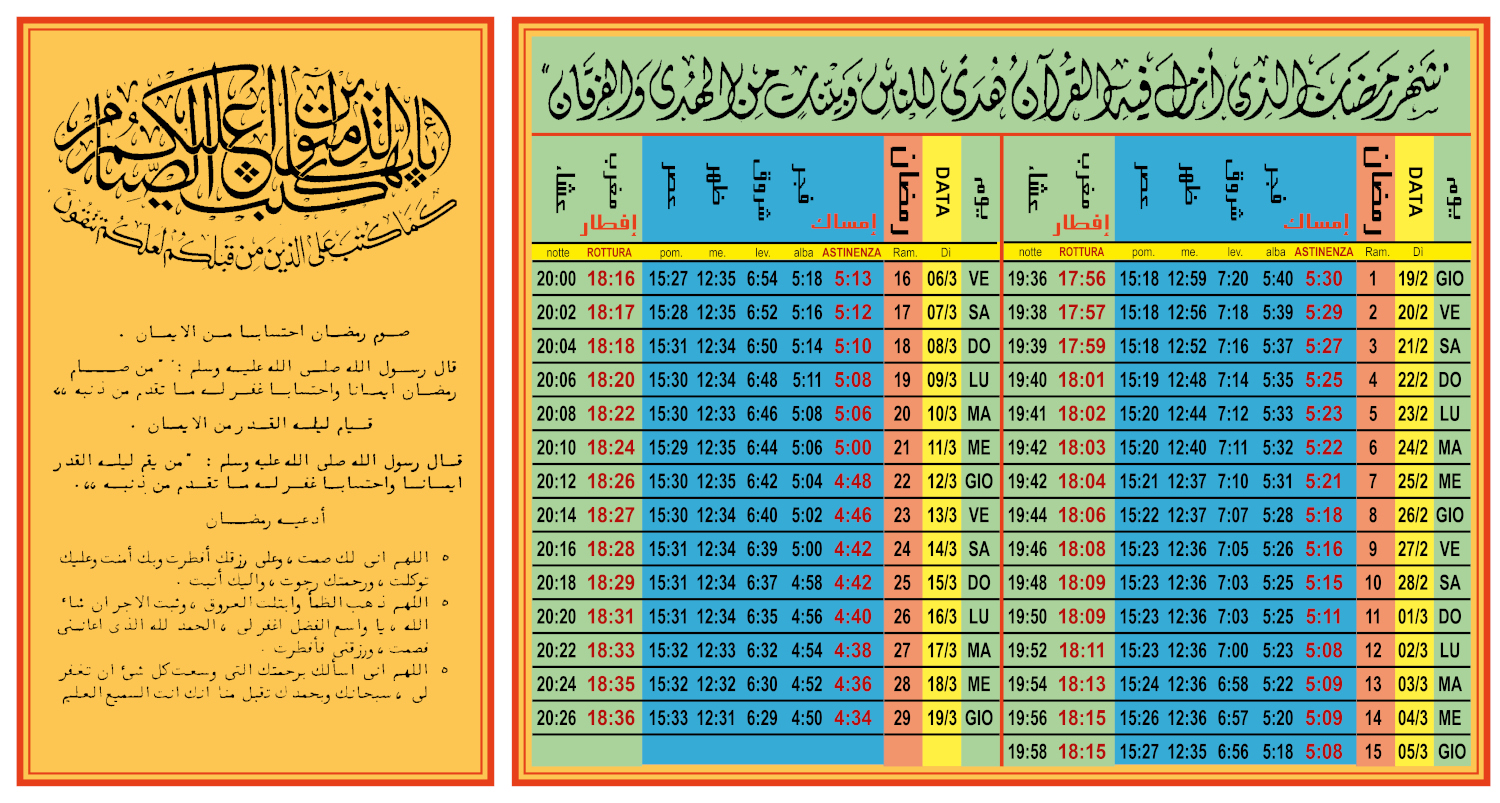 يا أيها الذين آمنوا كتب عليكم الصيام
كما كتب على الذين من قبلكم لعلكم تتقون
صوم رمضان احتسابا من الايمان .
قال رسول الله صلى الله عليه وسلم : " من صام
رمضان ايمانا واحتسابا غفر له ما تقدم من ذنبه "
قيام ليله القدر من الايمان .
قال رسول الله صلى الله عليه وسلم : " من يقم ليله القدر
ايمانا واحتسابا غفر له ما تقدم من ذنبه " .
أدعيه رمضان
° اللهم انى لك صمت ، وعلى رزقك أفطرت وبك أمنت وعليك
توكلت ، ورحمتك رجوت ، واليك أنيت .
° اللهم ذهب الظمأ وابتلت العروق ، وثبت الاجر ان شاء
الله ، يا واسع الفضل اغفر لى ، الحمد لله الذى اعاننى
فصمت ، ورزقنى فأفطرت .
° اللهم انى اسألك برحمتك التى وسعت كل شئ ان تغفر
لى ، سبحانك وبحمدك تقبل منا انك انت السميع العليم
"شهر رمضان الذي أنزل فيه القرآن هدى للناس وبينات من الهدى والفرقان"
عشاء مغرب عصر ظهر شروق فجر رمضان DATA يوم عشاء مغرب عصر ظهر شروق فجر رمضان DATA يوم
إفطار إمساك إفطار إمساك
notte ROTTURA pom. me. lev. alba ASTINENZA Ram. Di notte ROTTURA pom. me. lev. alba ASTINENZA Ram. Di
20:00 18:16 15:27 12:35 6:54 5:18 5:13 16 06/3 VE 19:36 17:56 15:18 12:59 7:20 5:40 5:30 1 19/2 GIO
20:02 18:17 15:28 12:35 6:52 5:16 5:12 17 07/3 SA 19:38 17:57 15:18 12:56 7:18 5:39 5:29 2 20/2 VE
20:04 18:18 15:31 12:34 6:50 5:14 5:10 18 08/3 DO 19:39 17:59 15:18 12:52 7:16 5:37 5:27 3 21/2 SA
20:06 18:20 15:30 12:34 6:48 5:11 5:08 19 09/3 LU 19:40 18:01 15:19 12:48 7:14 5:35 5:25 4 22/2 DO
20:08 18:22 15:30 12:33 6:46 5:08 5:06 20 10/3 MA 19:41 18:02 15:20 12:44 7:12 5:33 5:23 5 23/2 LU
20:10 18:24 15:29 12:35 6:44 5:06 5:00 21 11/3 ME 19:42 18:03 15:20 12:40 7:11 5:32 5:22 6 24/2 MA
20:12 18:26 15:30 12:35 6:42 5:04 4:48 22 12/3 GIO 19:42 18:04 15:21 12:37 7:10 5:31 5:21 7 25/2 ME
20:14 18:27 15:30 12:34 6:40 5:02 4:46 23 13/3 VE 19:44 18:06 15:22 12:37 7:07 5:28 5:18 8 26/2 GIO
20:16 18:28 15:31 12:34 6:39 5:00 4:42 24 14/3 SA 19:46 18:08 15:23 12:36 7:05 5:26 5:16 9 27/2 VE
20:18 18:29 15:31 12:34 6:37 4:58 4:42 25 15/3 DO 19:48 18:09 15:23 12:36 7:03 5:25 5:15 10 28/2 SA
20:20 18:31 15:31 12:34 6:35 4:56 4:40 26 16/3 LU 19:50 18:09 15:23 12:36 7:03 5:25 5:11 11 01/3 DO
20:22 18:33 15:32 12:33 6:32 4:54 4:38 27 17/3 MA 19:52 18:11 15:23 12:36 7:00 5:23 5:08 12 02/3 LU
20:24 18:35 15:32 12:32 6:30 4:52 4:36 28 18/3 ME 19:54 18:13 15:24 12:36 6:58 5:22 5:09 13 03/3 MA
20:26 18:36 15:33 12:31 6:29 4:50 4:34 29 19/3 GIO 19:56 18:15 15:26 12:36 6:57 5:20 5:09 14 04/3 ME
19:58 18:15 15:27 12:35 6:56 5:18 5:08 15 05/3 GIO